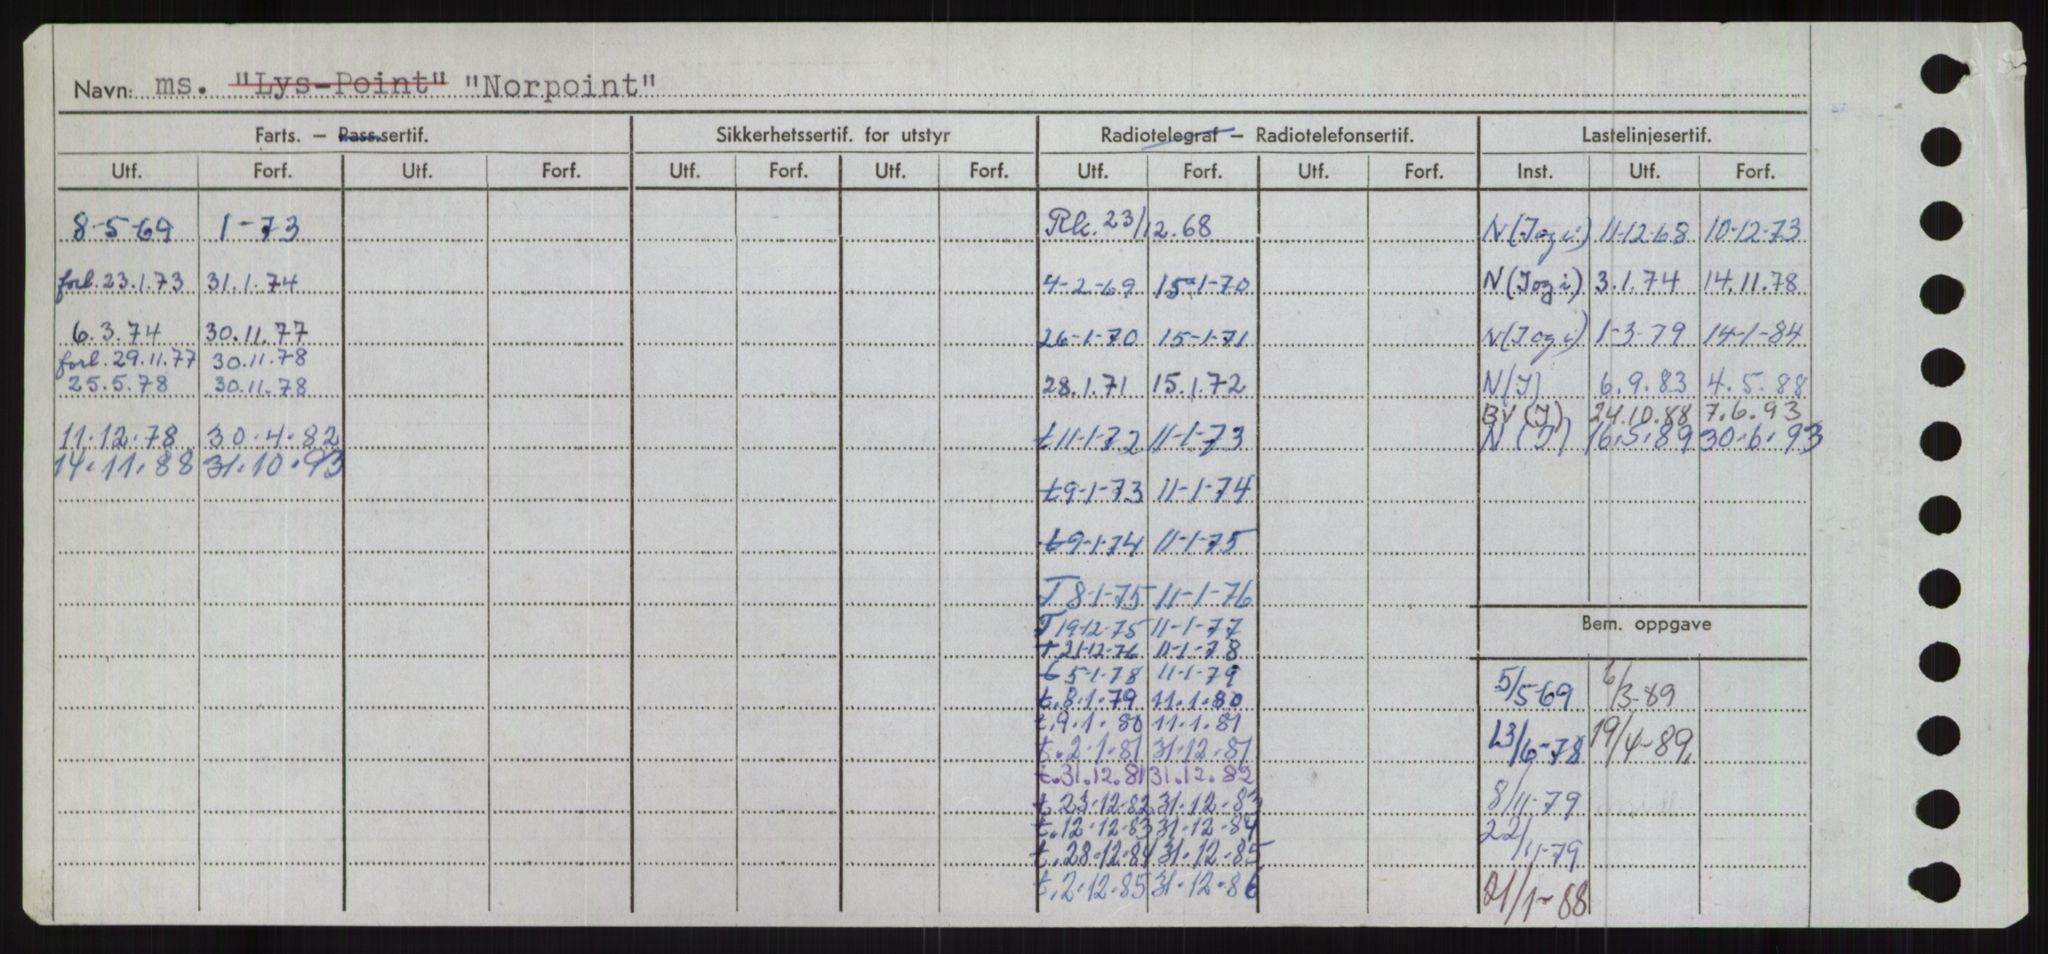 Navn: ms. "Lys-Point" "Norpoint"
Farts. — Pass.sertif. Sikkerhetssertif. for utstyr Radiotelegraf — Radiotelefonsertif. Lastelinjesertif.
Utf. Forf. Utf. Forf. Utf. Forf. Utf. Forf. Utf. Forf. Utf. Forf. Inst. Utf. Forf.
8-5-69 1-73 Rk. 23/12.68 N(Jogi) 11-12-68 10-12-73
forl. 23.1.73 31.1.74 4-2-69 15-1-70 N(Jogi) 3.1.74 14.11.78
6.3.74 30.11.77 26-1-70 15-1-71 N(Jogi) 1-3-79 14-1-84
forl. 29.11.77 30.11.78
25.5.78 30.11.78 28.1.71 15.1.72 N(J) 6.9.83 4.5.88
BV(J) 24.10.88 7.6.93
11.12.78 30.4.82 t 11-1-72 11-1-73 N(J) 16.5.89 30.6.93
14.11.88 31.10.93
t 9-1-73 11-1-74
t 9-1-74 11-1-75
T 8-1-75 11-1-76
T 19-12-75 11-1-77 Bem. oppgave
t. 21-12-76 11-1-78
t 5-1-78 11-1-79 5/5-69 6/3-89
t. 8.1.79 11.1.80
t. 9.1.80 11.1.81 23/6-78 19/4-89
t. 2.1.81 31.12.81
t. 31.12.81 31.12.82
t. 23.12.82 31.12.83 8/11-79
t. 12.12.83 31.12.84 22/11-79
t. 28.12.84 31.12.85
t. 2.12.85 31.12.86 21/1-88